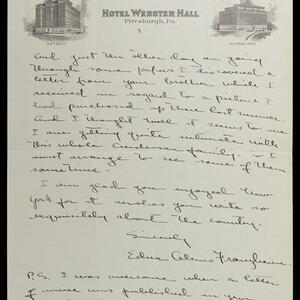 HOTEL WEBSTER HALL
Pittsburgh, Pa.
DETROIT
PITTSBURGH
3
And just the other day in going
through some papers I discovered a
letter from your brother which I
received in regard to a picture I
had purchased up there last summer.
And I thought well it seems to me
I am getting quite intimate with
this whole Anderson family. So I
must arrange to see some of them
sometime -
I am glad you enjoyed New
York for it makes you write so
exquisitely about the country.
Sincerely
Edna
P.S. I was overcome when a letter
of mine was published in your